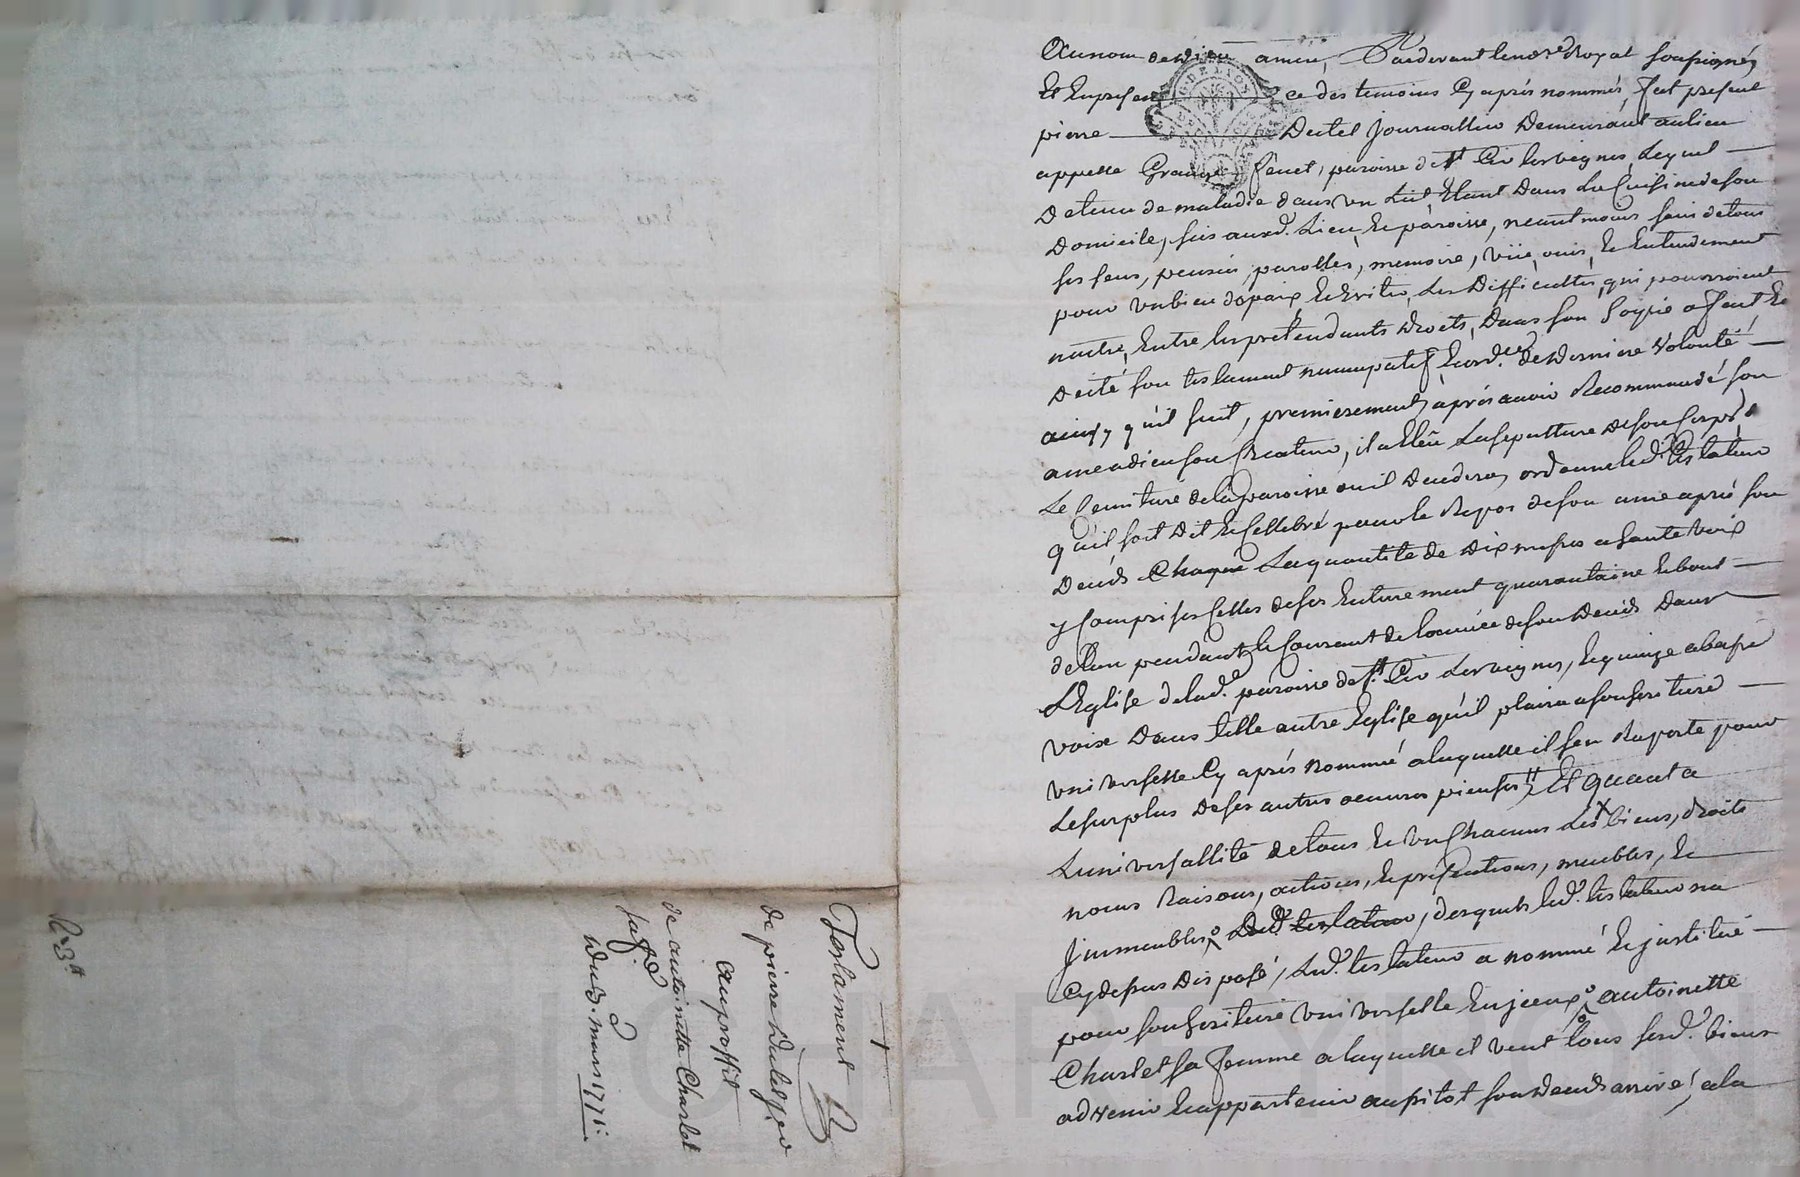 Au nom de Dieu amen, Pardevant le no.re Royal soussigné,
Et En presence des temoins Cy après nommés, fut present
pierre Dutel Journallier Demeurant au lieu
appellé Grange fenet, paroisse de St Cir les vignes, Lequel
Detenu de maladie dans un Lit Etant Dans La Cuisine de son
Domicile, sis aux d. Lieu, Et paroisse, neantmoins sain de tous
ses sens, pensée, parolles, memoire, vüe, ouïe, Et Entendement
pour un bien de paix Et Eviter Les Difficultes qui pourroient
naitre, Entre les pretendants Droits, Dans son hoyrie a fait Et
Dicté son testament nuncupatif Et ord.ce de Derniere Volonté
ainsy qu'il suit, premierement, après avoir Recommandé son
ame a dieu son Createur, il a Elëu La sepulture de son Corps
Le Cemitiere de la paroisse ou il Decedera, ordonne led. testateur
qu'il soit Dit Et Cellebré pour le Repos de son ame après son
Decés Chaque La quantité de Dix messes a haute voix
y Compris Celles de ses Enterrement quarantaine Et bout
de l'an pendant le Courant de l'année de son Decés Dans
L'Eglise de lad.e paroisse de St Cir Les vignes, Et quinze a basse
voix Dans telle autre Eglise qu'il plaira a son heritiere
universelle Cy après Nommée a laquelle il s'en Raporte pour
Le surplus De ses autres oeuvres pieuses, Et quant a
L'universallité de tous Et un Chacuns Les biens, droits
noms Raisons, actions, Et pretentions, meubles, Et
Immeubles Dud. testateur, desquels led. testateur na
Cy dessus Disposé, Led. testateur a nommé Et institué
pour son heritiere universelle En jceux antoinette
Charlet sa femme a laquelle il veut tous sesd. biens
advenir Et appartenir aussitot son Decés arrivé, a la
Testament
de pierre Dutel
au proffit
de antoinette Charlet
sa f.e
Du 3. mars 1771.